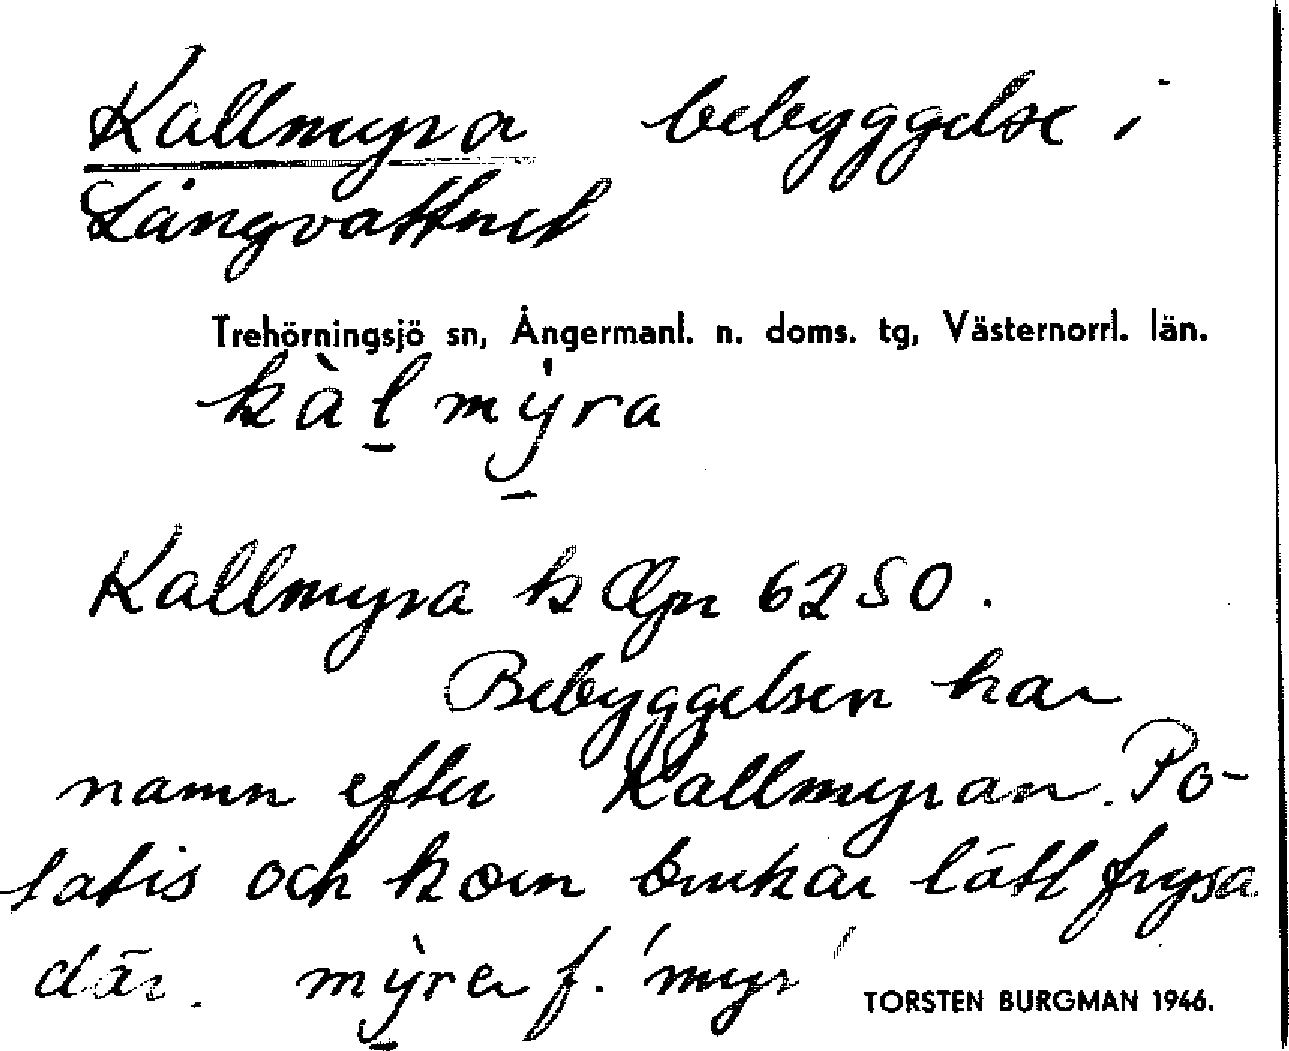 Kallmyra bebyggelse i
Långvattnet
Trehörningsjö sn, Ångermanl. n. doms. tg, Västernorrl. län.
kàl̲mý̲ra
Kallmyra k Glpr 6250.
Bebyggelsen har
namn efter Kallmyran. Po-
tatis och korn brukar lätt frysa
där. mỳ̲ra f. 'myr'
TORSTEN BURGMAN 1946.